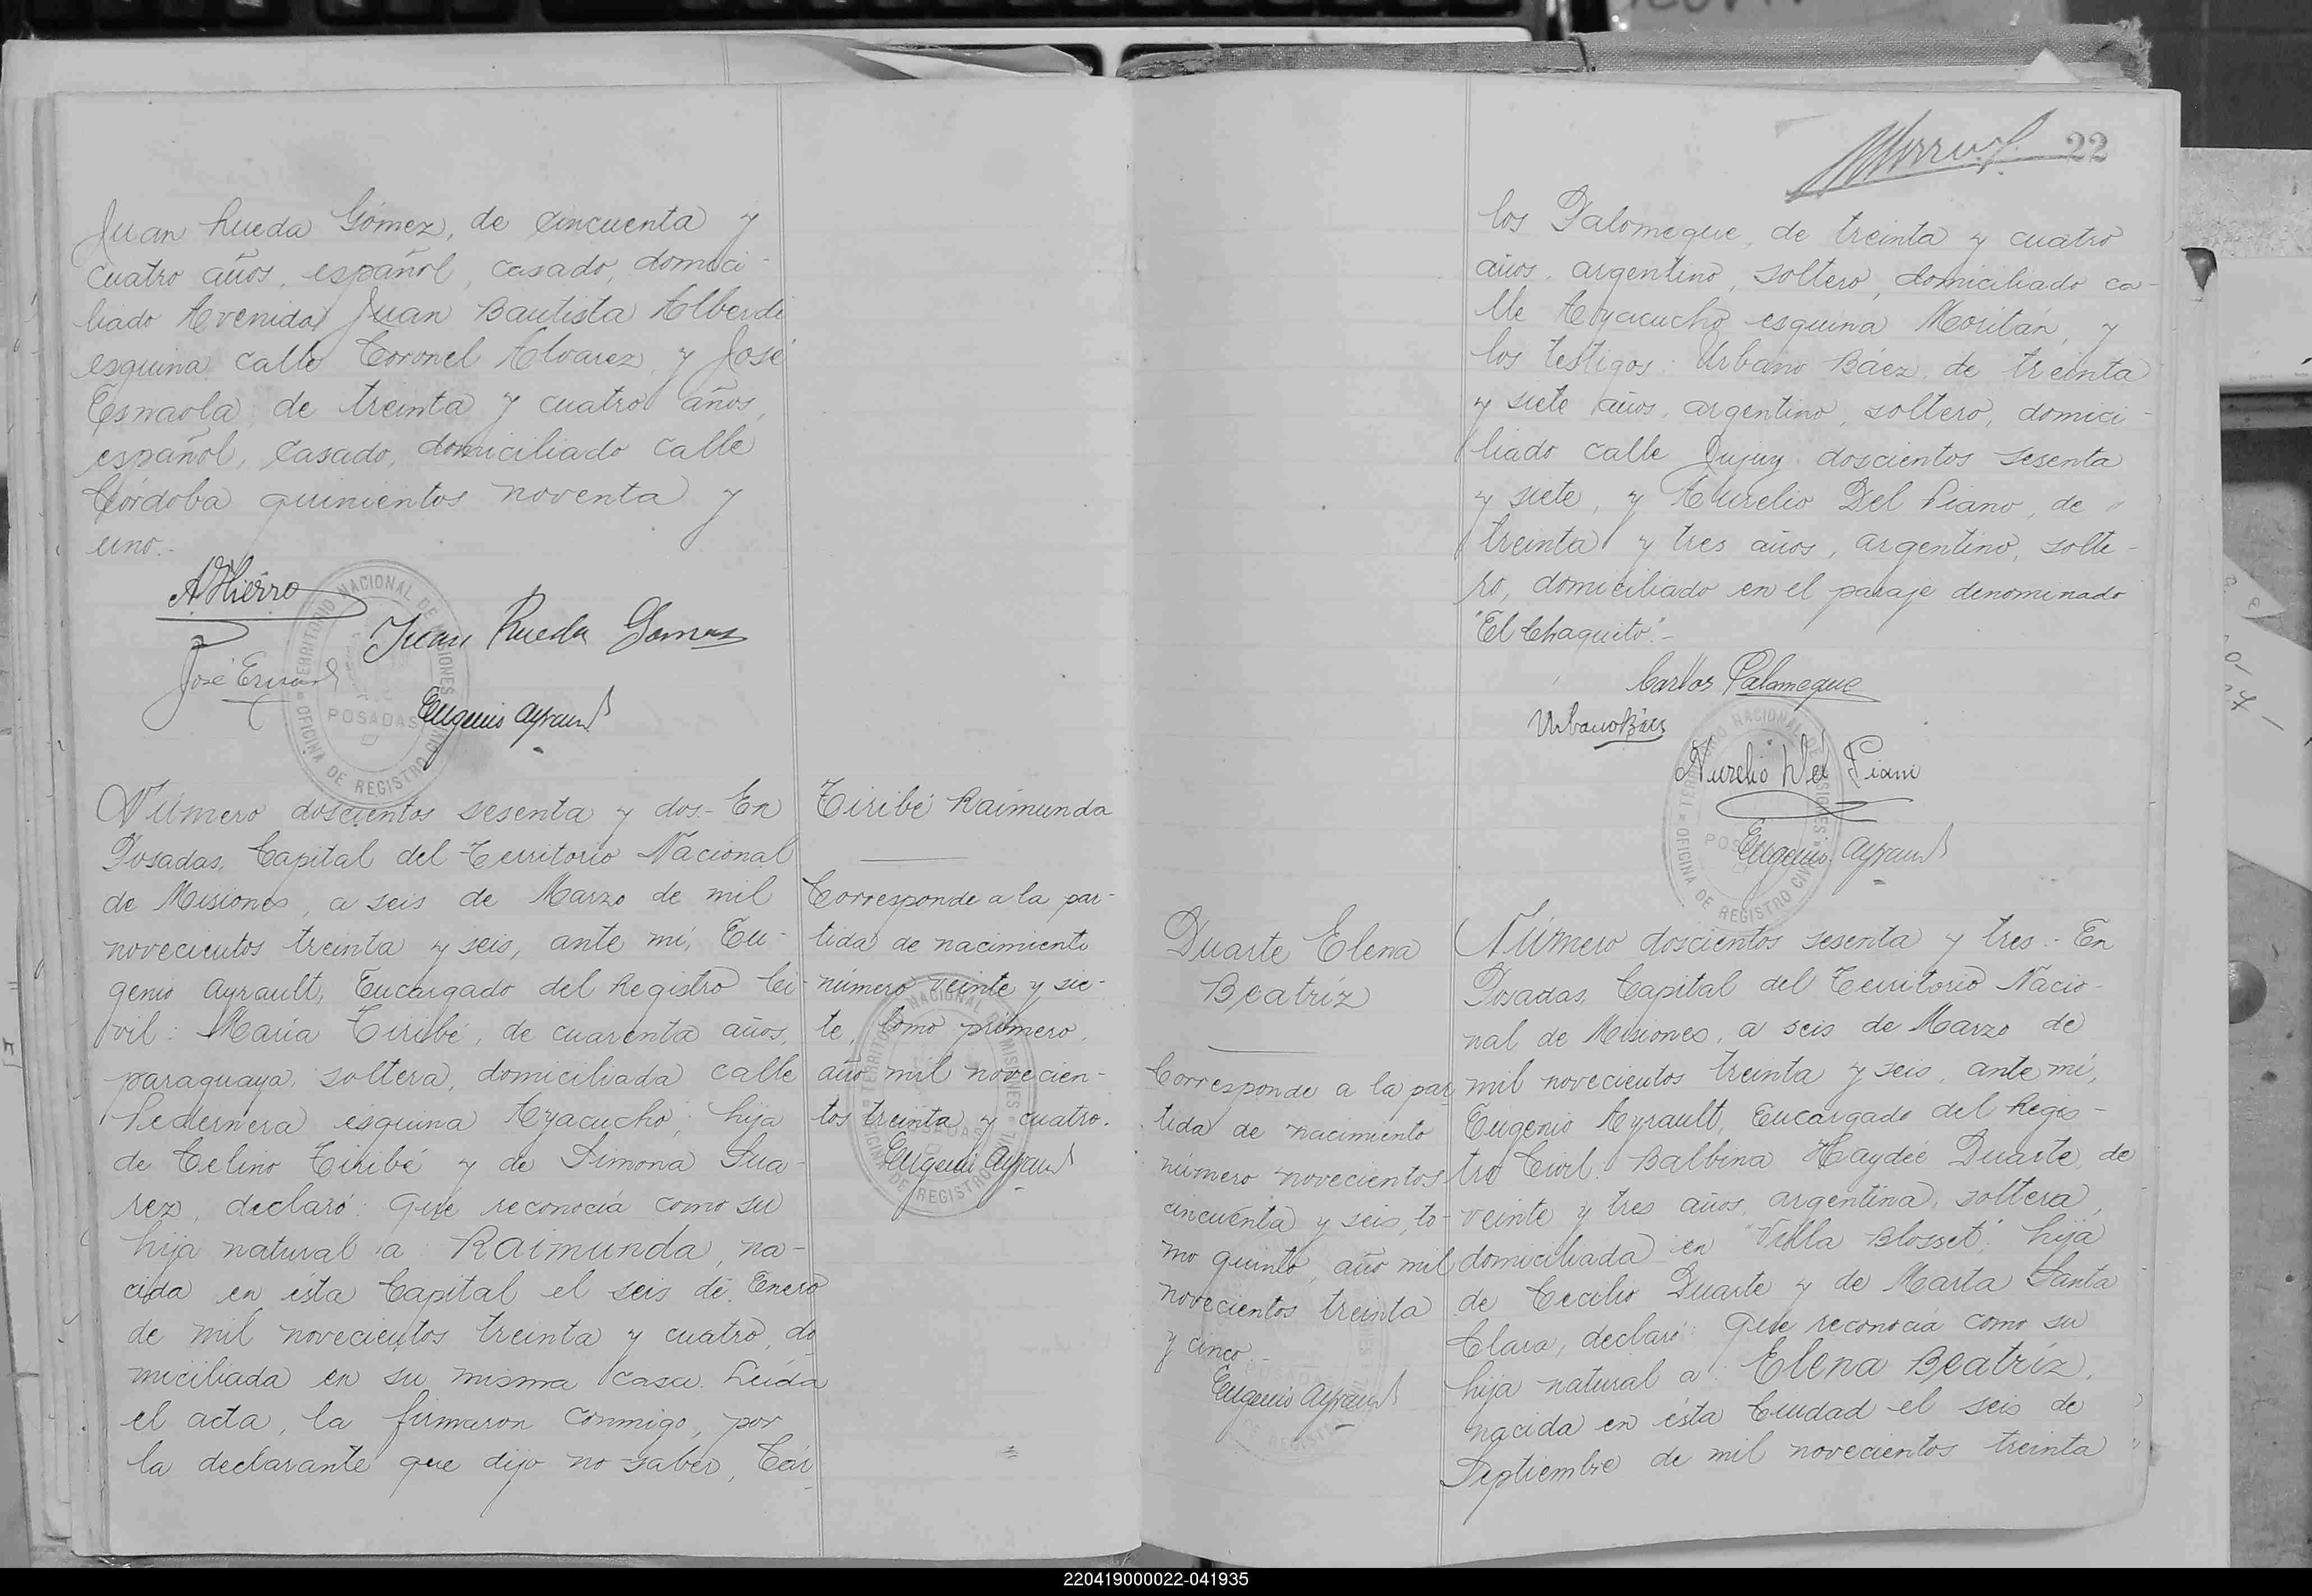 Juan Rueda Gómez, de cincuenta y
cuatro años, español, casado, domici-
liado Avenida Juan Bautista Alberdi
esquina calle Coronel Alvarez, y José
Esnaola, de treinta y cuatro años,
español, casado, domiciliado calle
Córdoba quinientos noventa y
uno.-
A Hierro
Juan Rueda Gomez
José Esnaola
Eugenio Ayrault
TERRITORIO NACIONAL DE MISIONES
POSADAS
OFICINA DE REGISTRO CIVIL
Número doscientos sesenta y dos.- En
Posadas, Capital del Territorio Nacional
de Misiones, a seis de Marzo de mil
novecientos treinta y seis, ante mí, Eu-
genio Ayrault, Encargado del Registro Ci-
vil: María Tiribé, de cuarenta años,
paraguaya, soltera, domiciliada calle
Pedernera esquina Ayacucho, hija
de Celino Tiribé y de Simona Sua-
rez, declaró: Que reconocía como su
hija natural a Raimunda, na-
cida en ésta Capital el seis de Enero
de mil novecientos treinta y cuatro, do
miciliada en su misma casa. Leída
el acta, la firmaron conmigo, por
la declarante que dijo no saber, Cár-
Tiribé Raimunda
Corresponde a la par-
tida de nacimiento
número veinte y sie-
te, tomo primero,
año mil novecien-
tos treinta y cuatro.
Eugenio Ayrault
22
los Palomeque, de treinta y cuatro
años, argentino, soltero, domiciliado ca-
lle Ayacucho esquina Moritán, y
los testigos: Urbano Báez, de treinta
y siete años, argentino, soltero, domici-
liado calle Jujuy doscientos sesenta
y siete, y Aurelio Del Piano, de "
treinta y tres años, argentino, solte-
ro, domiciliado en el paraje denominado
"El Chaquito".-
Carlos Palomeque
Urbano Báez
Aurelio Del Piano
Eugenio Ayrault
TERRITORIO NACIONAL DE MISIONES
POSADAS
OFICINA DE REGISTRO CIVIL
Duarte Elena
Beatríz
Corresponde a la par
tida de nacimiento
número novecientos
cincuenta y seis, to-
mo quinto, año mil
novecientos treinta
y cinco.-
Eugenio Ayrault
Número doscientos sesenta y tres.- En
Posadas, Capital del Territorio Nacio-
nal de Misiones, a seis de Marzo de
mil novecientos treinta y seis, ante mí,
Eugenio Ayrault, Encargado del Regis-
tro Civil: Balbina Haydée Duarte, de
veinte y tres años, argentina, soltera,
domiciliada en "Villa Blosset", hija
de Cecilio Duarte y de Marta Santa
Clara, declaró: Que reconocía como su
hija natural a Elena Beatríz,
nacida en ésta Ciudad el seis de
Septiembre de mil novecientos treinta
220419000022-041935